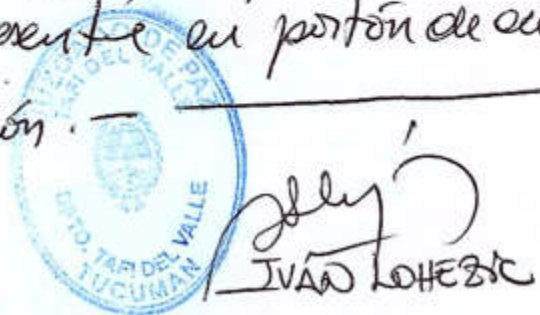 esente en portón de en
ón. —
JUZGADO DE PAZ
TAFI DEL VALLE
DPTO. TAFI DEL VALLE
TUCUMAN
IVÁN LOHEZIC